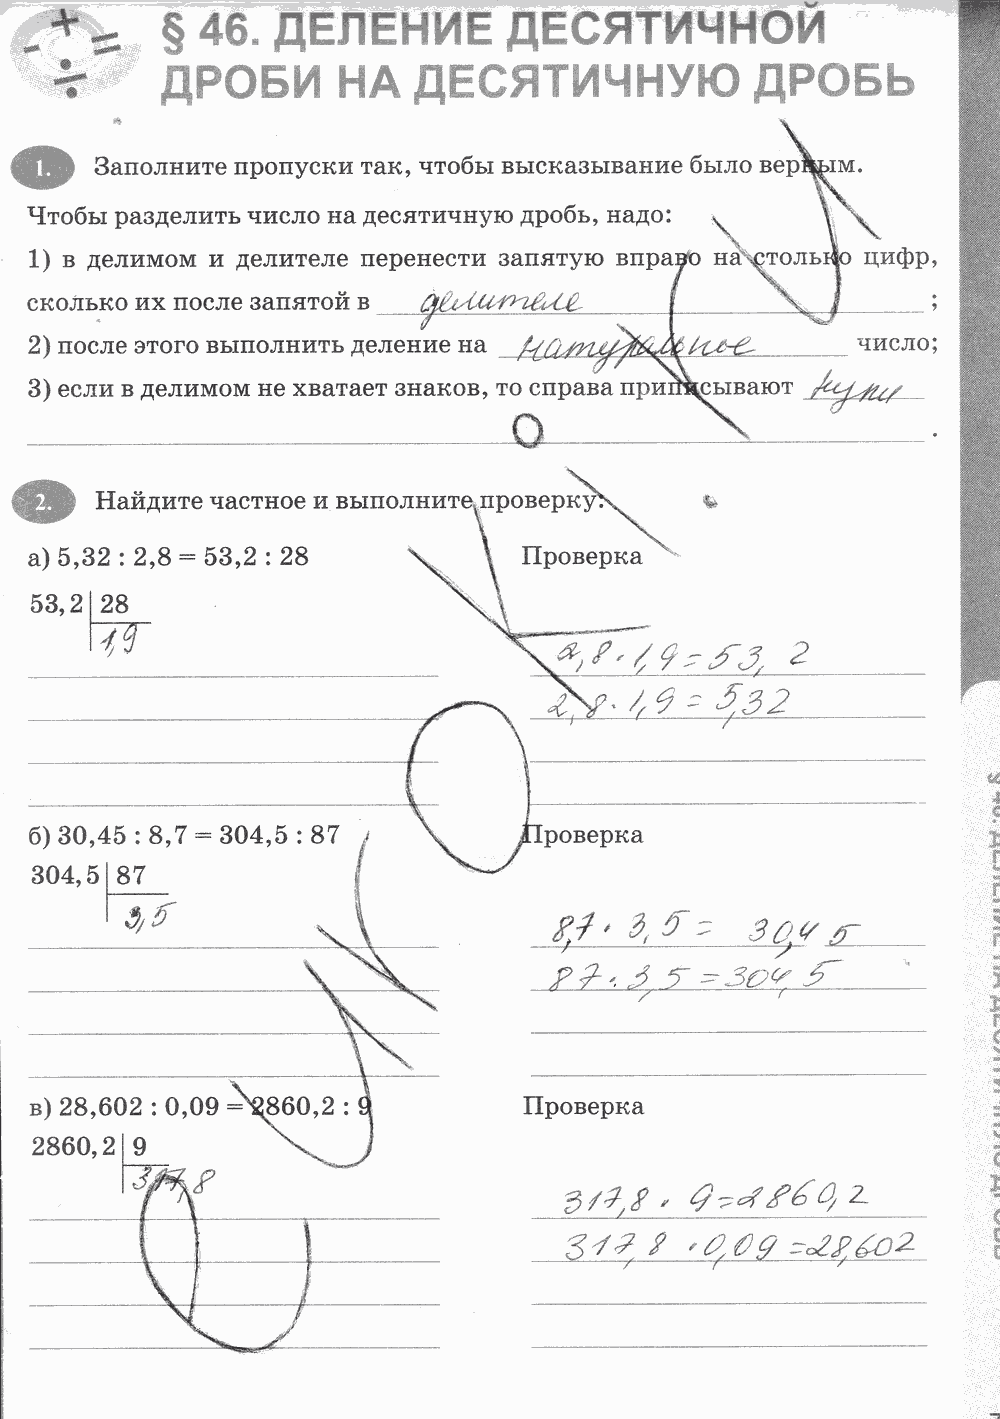 § 46. ДЕЛЕНИЕ ДЕСЯТИЧНОЙ
ДРОБИ НА ДЕСЯТИЧНУЮ ДРОБЬ
1. Заполните пропуски так, чтобы высказывание было верным.
Чтобы разделить число на десятичную дробь, надо:
1) в делимом и делителе перенести запятую вправо на столько цифр,
сколько их после запятой в делителе ;
2) после этого выполнить деление на натуральное число;
3) если в делимом не хватает знаков, то справа приписывают нули
.
2. Найдите частное и выполните проверку:
а) 5,32 : 2,8 = 53,2 : 28
53,2 28
1,9
Проверка
2,8 · 1,9 = 53,2
2,8 · 1,9 = 5,32
б) 30,45 : 8,7 = 304,5 : 87
304,5 87
3,5
Проверка
8,7 · 3,5 = 30,45
87 · 3,5 = 304,5
в) 28,602 : 0,09 = 2860,2 : 9
2860,2 9
317,8
Проверка
317,8 · 9 = 2860,2
317,8 · 0,09 = 28,602